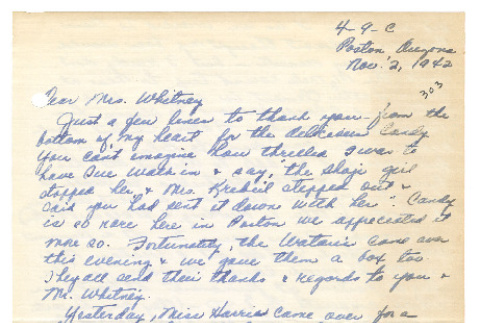 4-9-C
Poston Arizona
Nov. 2, 1942
303
Dear Mrs. Whitney
Just a few lines to thank you from the
bottom of my heart for the delicious candy
You can't imagine how thrilled I was to
have Sue walk in & say, "the shoji girl
stopped her, & Mrs. Krehbiel stepped out &
said you had sent it down with her". Candy
is so rare here in Poston we appreciated it
more so. Fortunately, the Wataris came over
this evening & we gave them a box too
They all send their thanks & regards to you &
Mr. Whitney.
Yesterday, Miss Harris came over for a